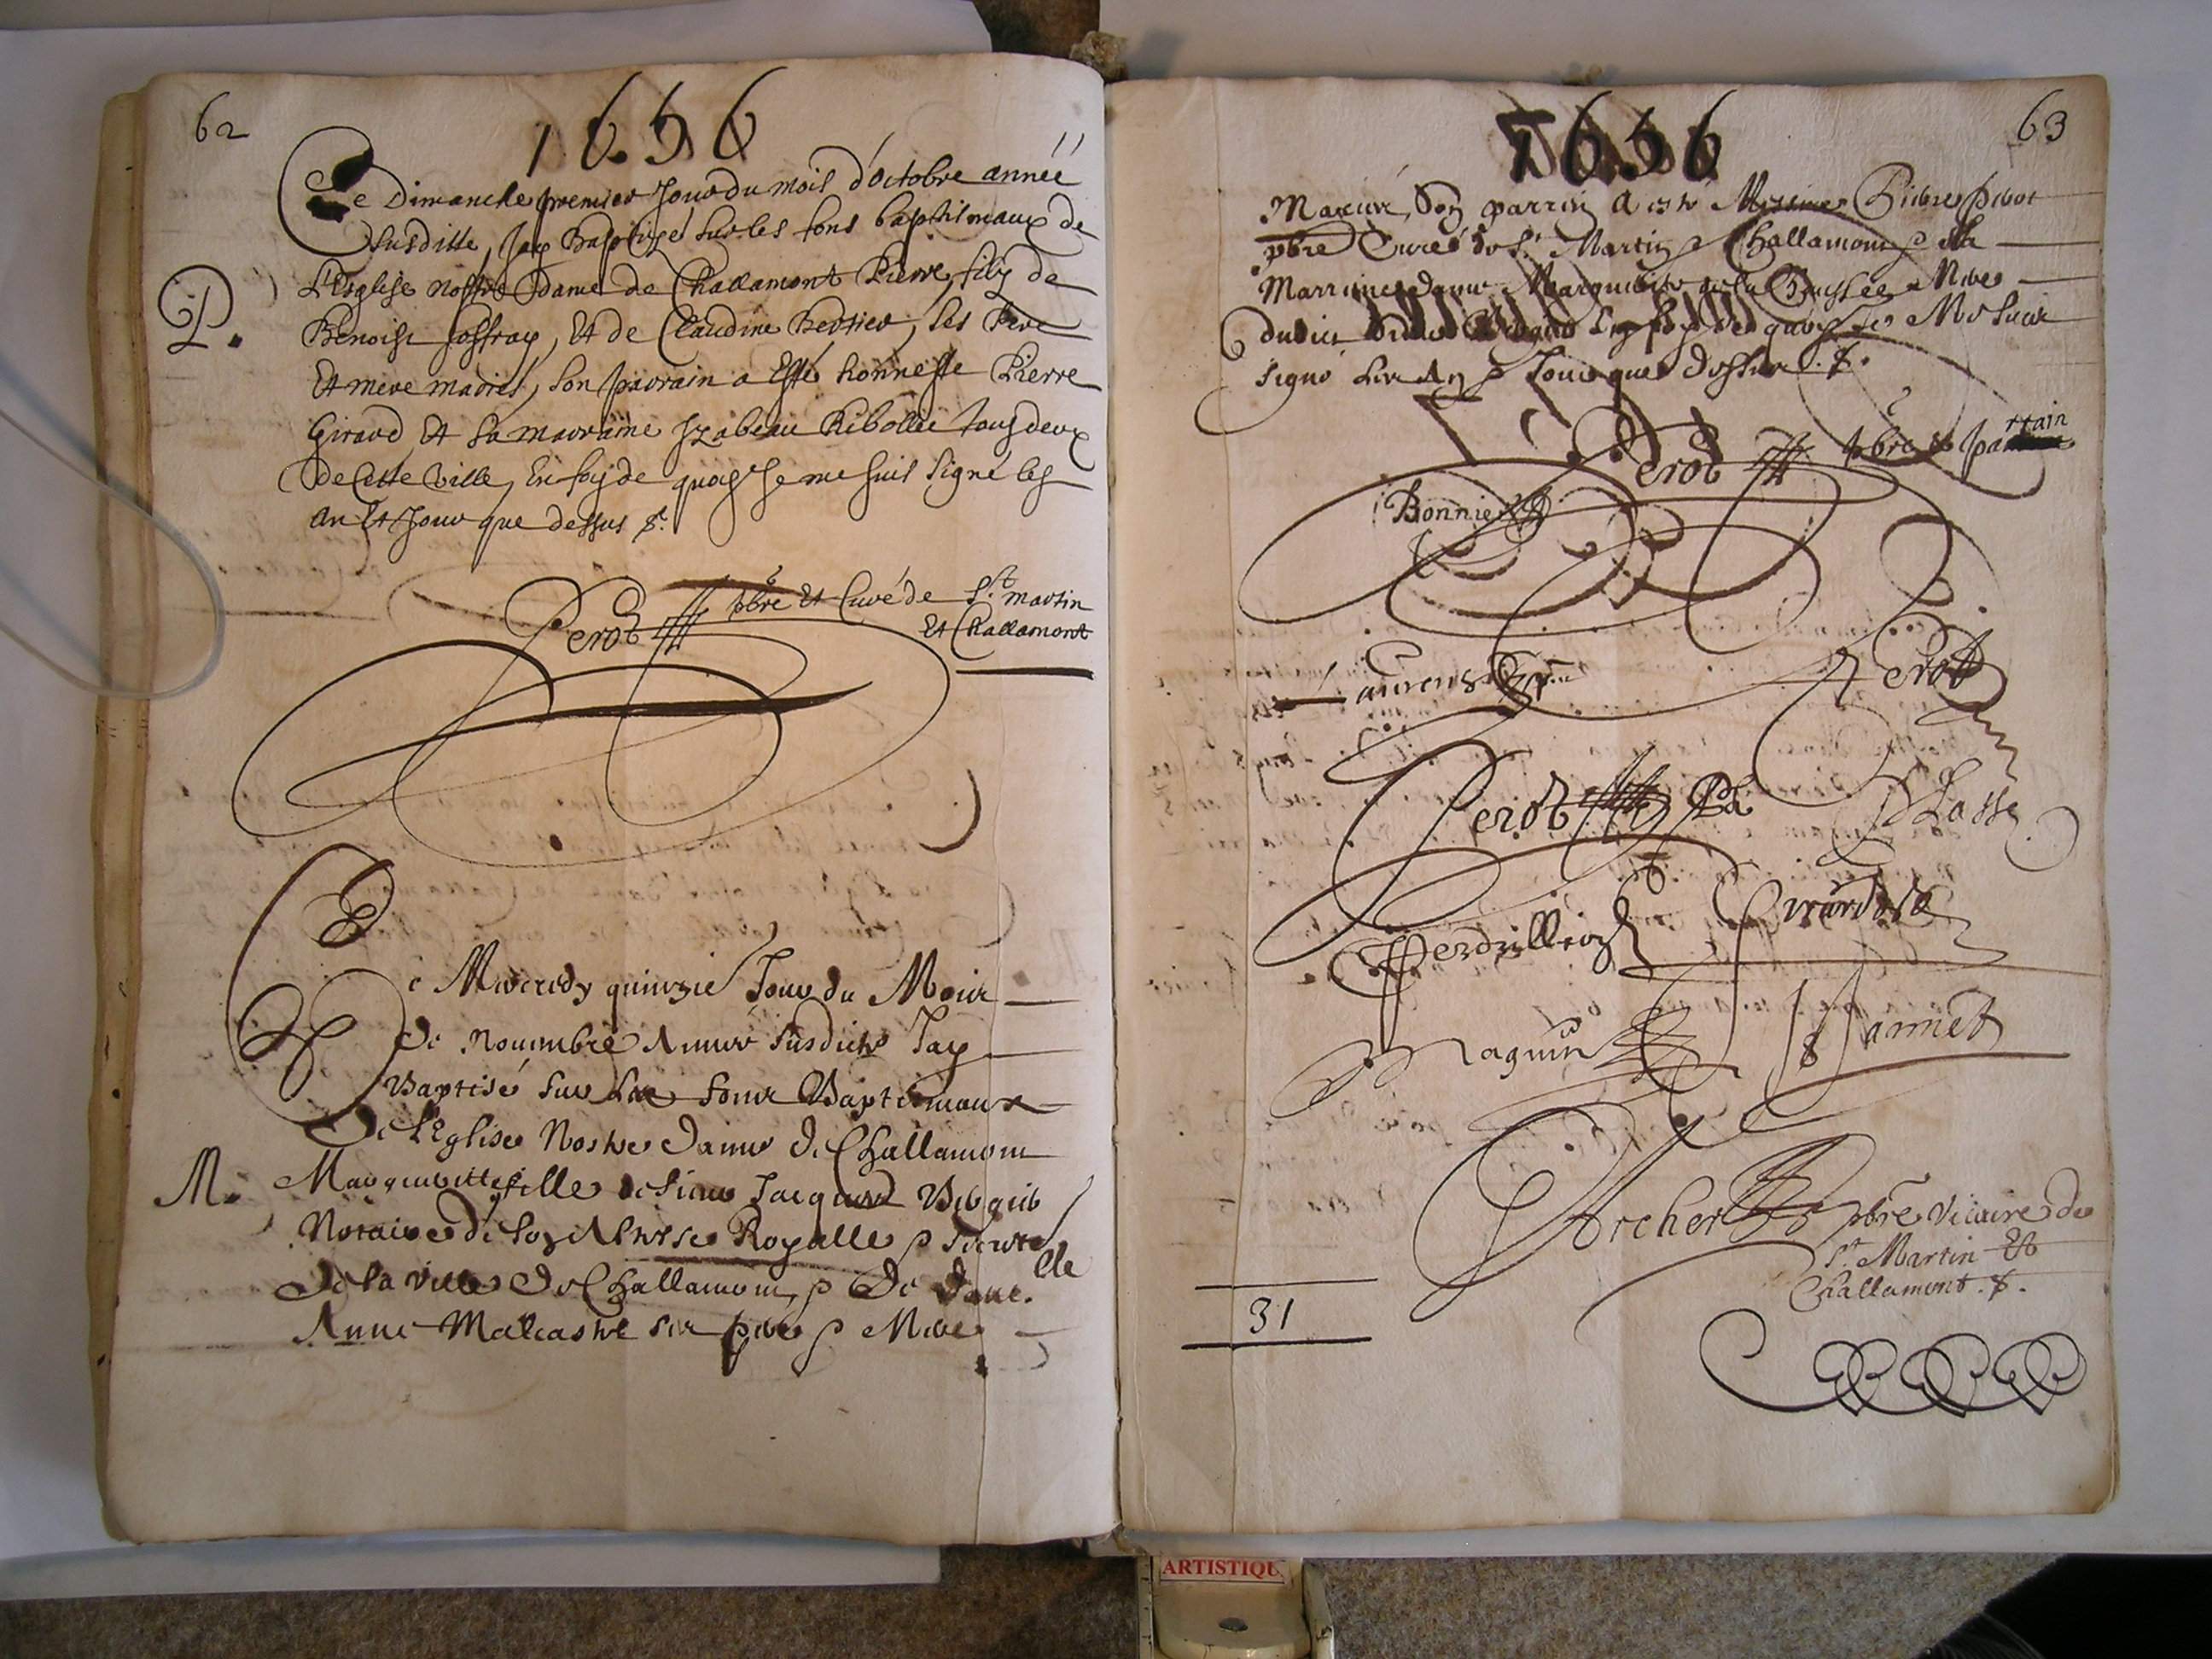 62
1656
Ce Dimanche premier Jour du mois d'octobre année
susditte, Jay Baptizé sur les fons baptismaux de
L'Esglise nostre Dame de Challamont Pierre, filz de
P.
Benoist Joffray, Et de Claudine Berthier, ses Pere
Et mere mariés, son parrain a Esté honneste Pierre
Giraud Et sa marraine Izabeau Ribollée tous deux
de Cette Ville, En foy de quoy Je me suis signé les
an Et Jour que dessus
Perot pbre Et Curé de St. martin
Et Challamont
Ce Mecredy quinzie Jour du Mois
de Nouembre Annee susdicte Jay
Baptisé sur les fons Baptismaux
De L'Eglise Nostre Dame de Challamont
M.
Margueritte fille de sieur Jacques
Notaire de son Altesse Royalle
de la Ville de Challamont, p De dame
lle
Anne Malcastre ses pere p Mere
63
1656
Mariés, Son parrin A esté Messire Pierre Perot
pbre Curé de St. Martin p Challamont p sa
Marrine dame Margueritte de la Mere
dudict En foy de quoy Je Me suis
signé Les An p Jour que dessus
Perot pbre parrain
Bonnier
Laurens
Perot
Perot
Perdrillion
Girard
Magnin
Jannet
Archer pbre Vicaire de
St. Martin Et
Challamont
31
ARTISTIQU